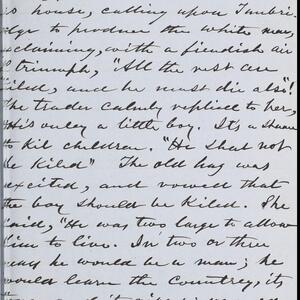 is house, calling upon Tambri
dge to produce the white man,
xclaiming, with a fiendish air
of triumph, "All the rest are
Kiled, and he must die also"!
The trader calmly replied to her,
His only a little boy. Its a shame
to kil children. "He shal not
be Kiled" The old hag was
excited, and vowed that
the boy should be Kiled. She
said, "He was two large to allow
him to live. In two or three
years he would be a man; he
would learn the countrey, its